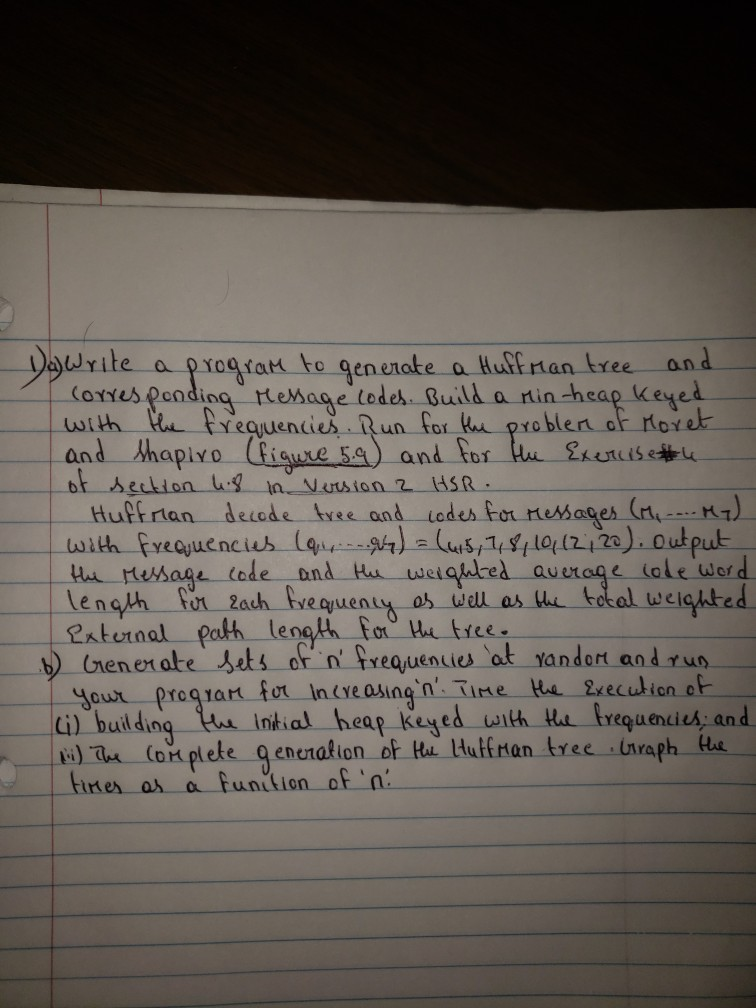 1)a) Write a program to generate a Huffman tree and
corresponding Message codes. Build a Min-heap Keyed
with the frequencies. Run for the problem of Moret
and Shapiro (figure 5.9) and for the Exercise 4
of section 4.8 in Version 2 HSR.
Huffman decode tree and codes for messages (M1 .... M7)
with frequencies (q1, ... q7) = (4,5,7,8,10,12,20). Output
the Message code and the weighted average code word
length for each frequency as well as the total weighted
External path length for the tree.
b) Generate Sets of 'n' frequencies at random and run
your program for increasing 'n'. Time the Execution of
(i) building the initial heap keyed with the frequencies; and
ii) The complete generation of the Huffman tree. Graph the
times as a function of 'n'.